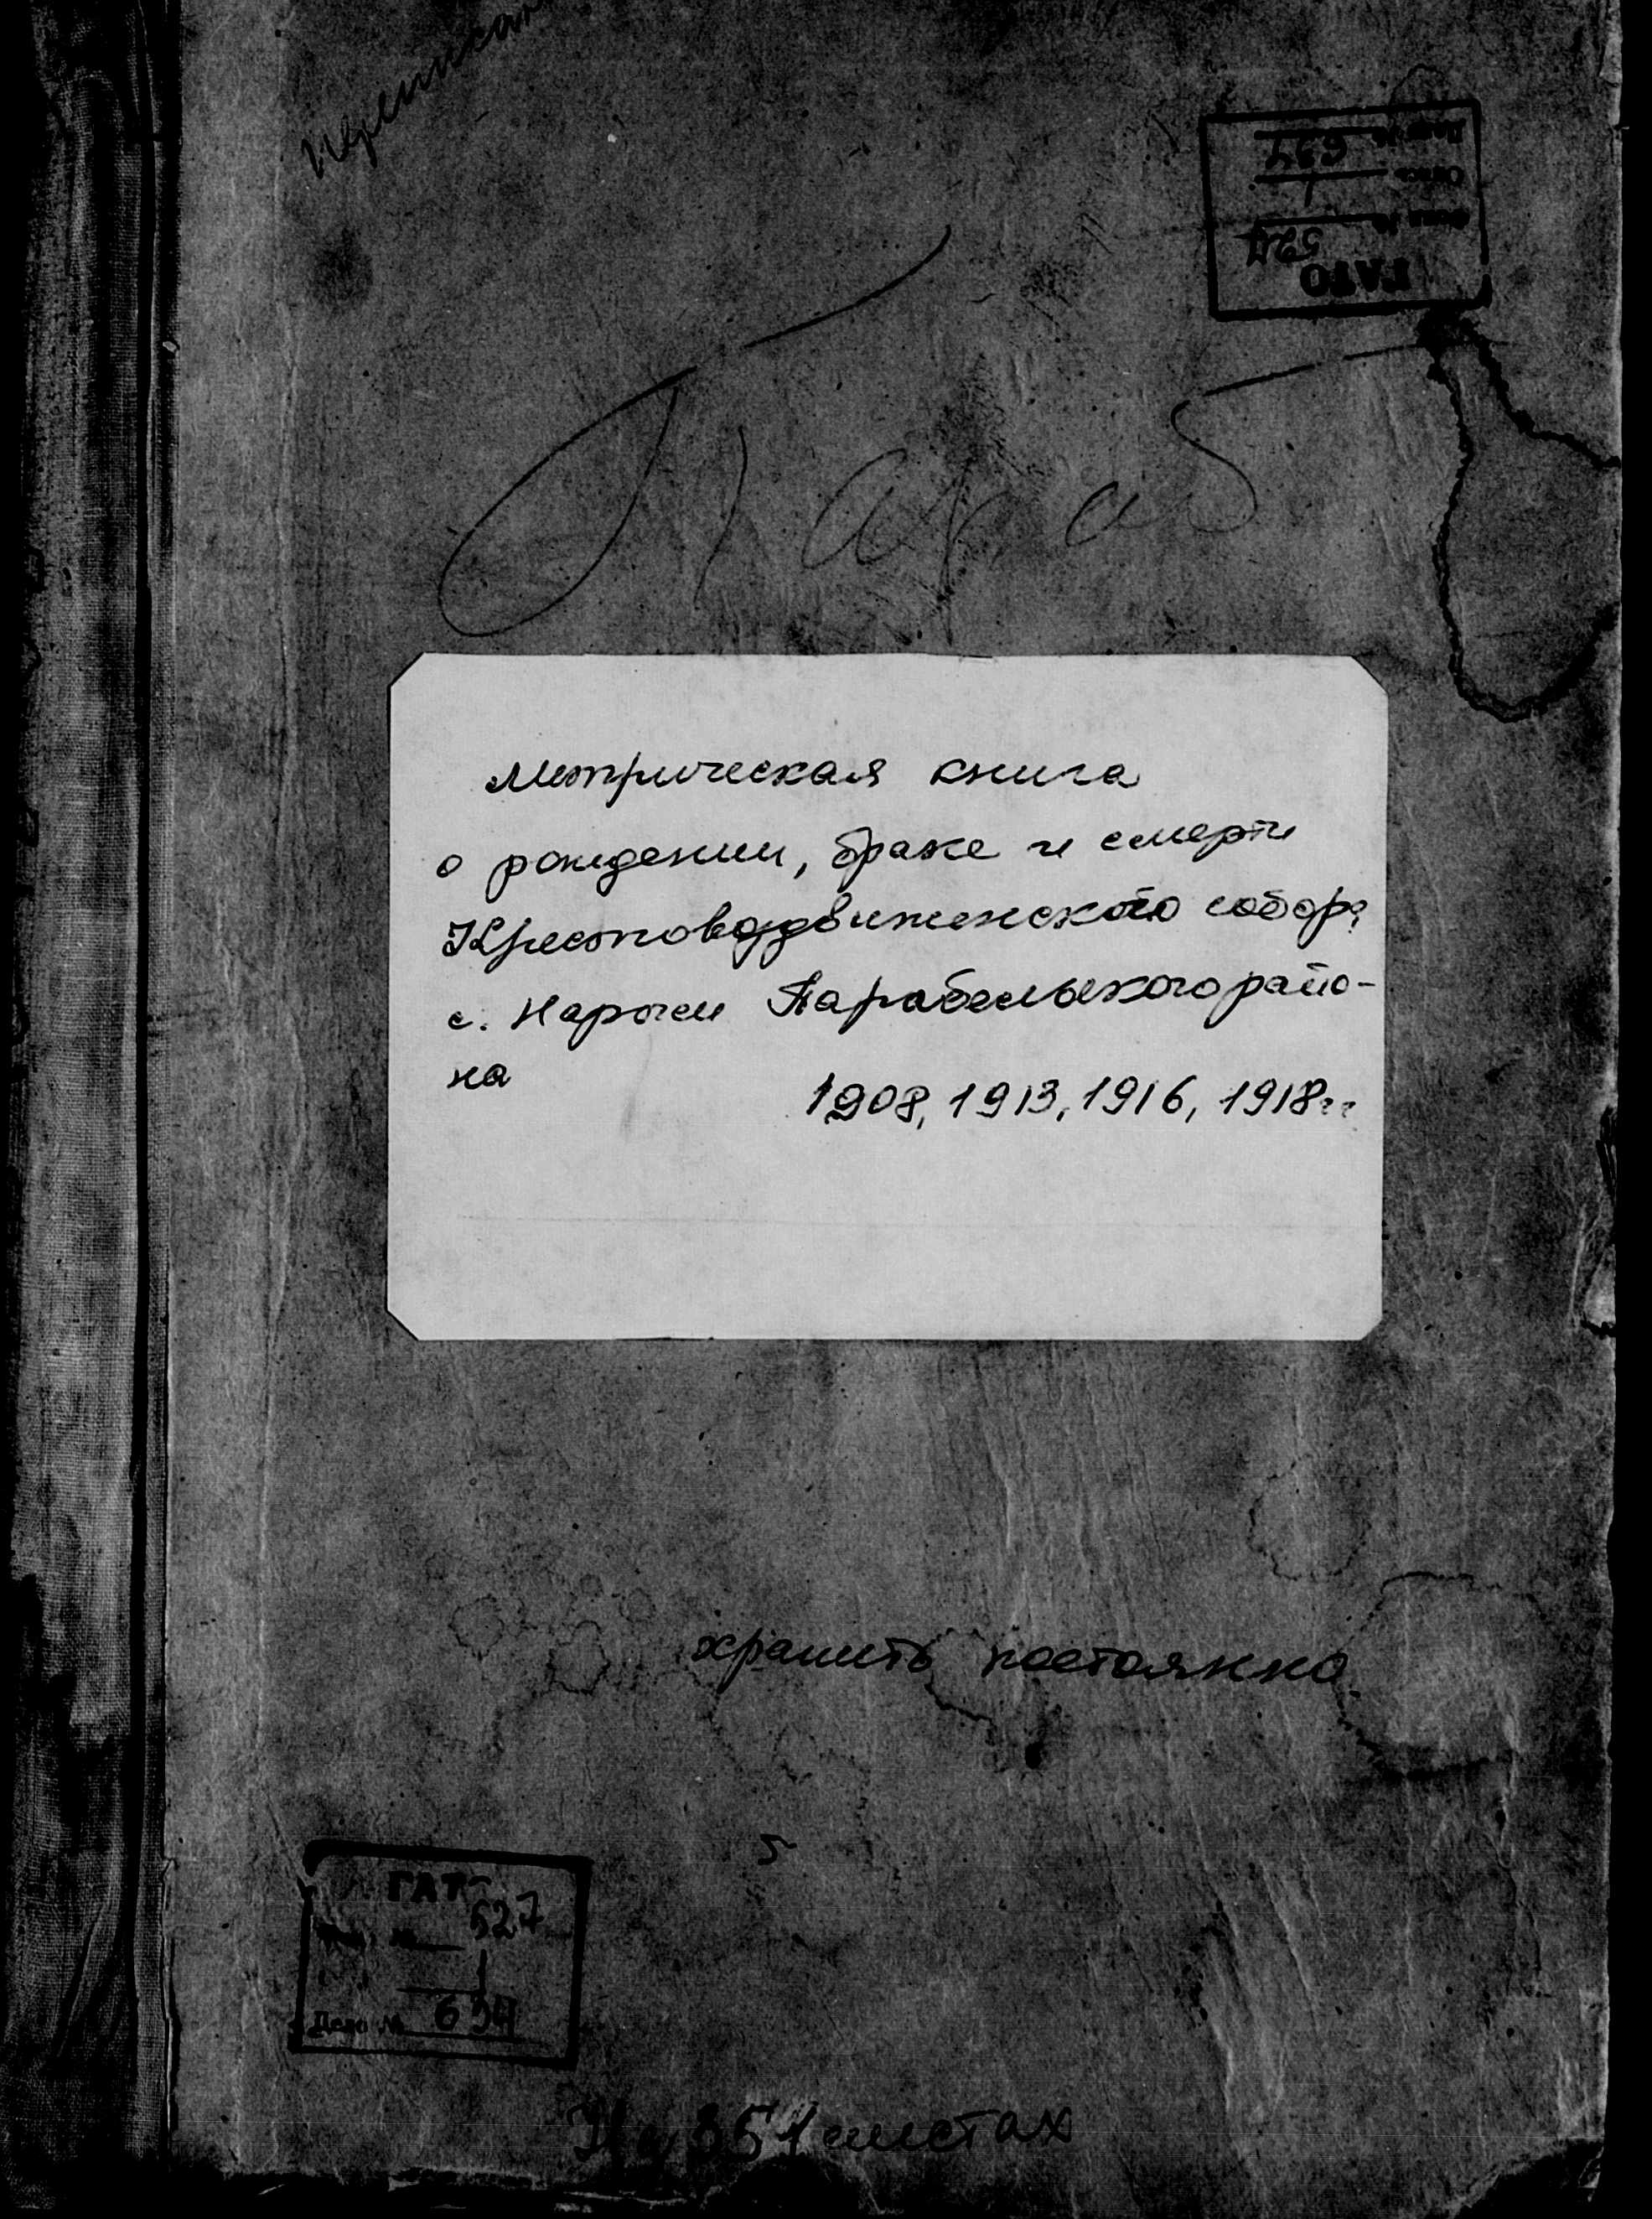 ГАТО
Фонд № 527
Опись 1
Дело № 694
Параб
Метрическая книга
о рождении, браке и смерти
Крестовоздвиженского собора
с. Нарыми Парабельского райо-
на
1908, 1913, 1916, 1918гг
хранить постоянно
5
527
1
Дело № 694
На 351 листах